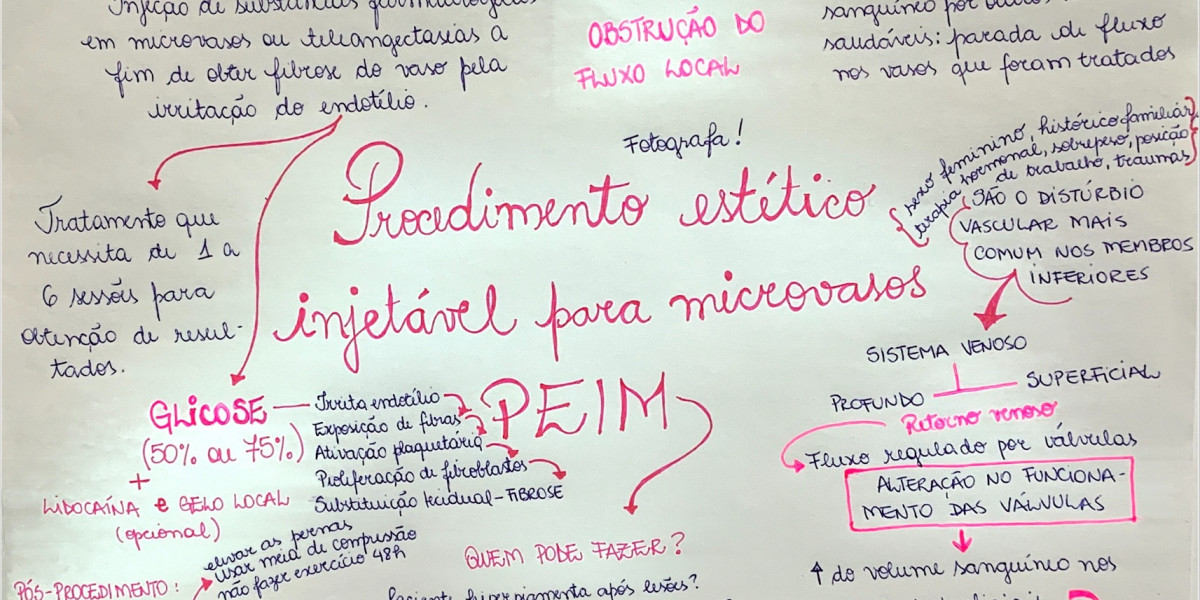 Injeção de substâncias
em microvasos ou teleangectasias a
fim de obter fibrose do vaso pela
irritação do endotélio.
OBSTRUÇÃO DO
FLUXO LOCAL
sanguíneo por
saudáveis: parada de fluxo
nos vasos que foram tratados
Fotografa!
Procedimento estético
injetável para microvasos
PEIM
sexo feminino, histórico familiar,
terapia hormonal, sobrepeso, posição
de trabalho, traumas
SÃO O DISTÚRBIO
VASCULAR MAIS
COMUM NOS MEMBROS
INFERIORES
Tratamento que
necessita de 1 a
6 sessões para
obtenção de resul-
tados.
GLICOSE
(50% ou 75%)
+
LIDOCAÍNA e GELO LOCAL
(opcional)
Irrita endotélio
Exposição de fibras
Ativação plaquetária
Proliferação de fibroblastos
Substituição tecidual - FIBROSE
SISTEMA VENOSO
SUPERFICIAL
PROFUNDO
Retorno venoso
Fluxo regulado por válvulas
ALTERAÇÃO NO FUNCIONA-
MENTO DAS VÁLVULAS
↑ do volume sanguíneo nos
PÓS-PROCEDIMENTO:
elevar as pernas
usar meia de compressão
não fazer exercício 48h
QUEM PODE FAZER?
Paciente hiperpigmenta após lesões?